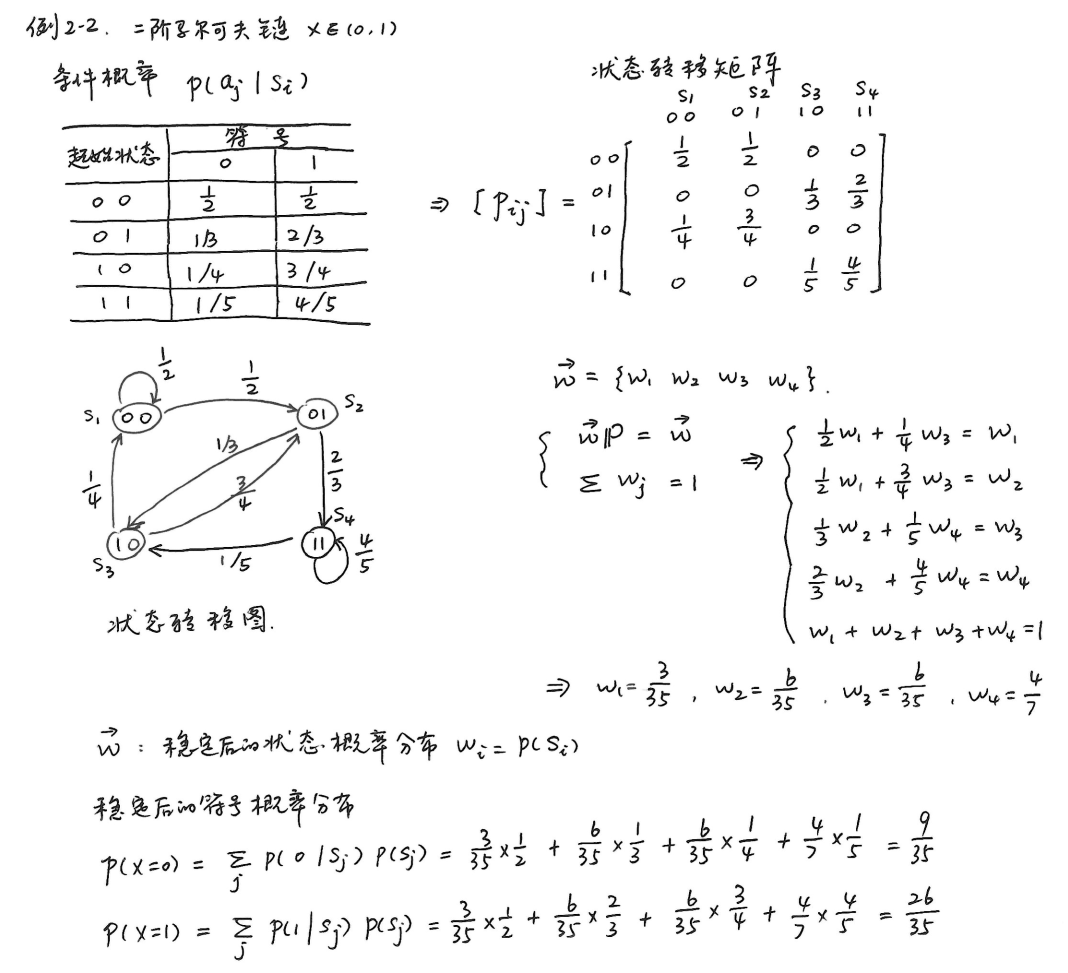 例2-2. 二阶马尔可夫链 X∈(0,1)
条件概率 p(aj | si)
起始状态 符号
0 1
00 1/2 1/2
01 1/3 2/3
10 1/4 3/4
11 1/5 4/5
状态转移矩阵
S1 S2 S3 S4
00 01 10 11
00 1/2 1/2 0 0
01 0 0 1/3 2/3
⇒ [Pij] =
10 1/4 3/4 0 0
11 0 0 1/5 4/5
1/2
1/2
S1 00
01 S2
1/3
3/4
1/4
2/3
S4
10
S3
1/5
11
4/5
状态转移图.
w⃗ = {w1 w2 w3 w4}.
w⃗P = w⃗
Σ wj = 1
⇒
1/2 w1 + 1/4 w3 = w1
1/2 w1 + 3/4 w3 = w2
1/3 w2 + 1/5 w4 = w3
2/3 w2 + 4/5 w4 = w4
w1 + w2 + w3 + w4 = 1
⇒ w1 = 3/35 , w2 = 6/35 , w3 = 6/35 , w4 = 4/7
w⃗ : 稳定后的状态概率分布 wi = p(si)
稳定后的符号概率分布
p(x=0) = Σj p(0|sj) p(sj) = 3/35 × 1/2 + 6/35 × 1/3 + 6/35 × 1/4 + 4/7 × 1/5 = 9/35
p(x=1) = Σj p(1|sj) p(sj) = 3/35 × 1/2 + 6/35 × 2/3 + 6/35 × 3/4 + 4/7 × 4/5 = 26/35